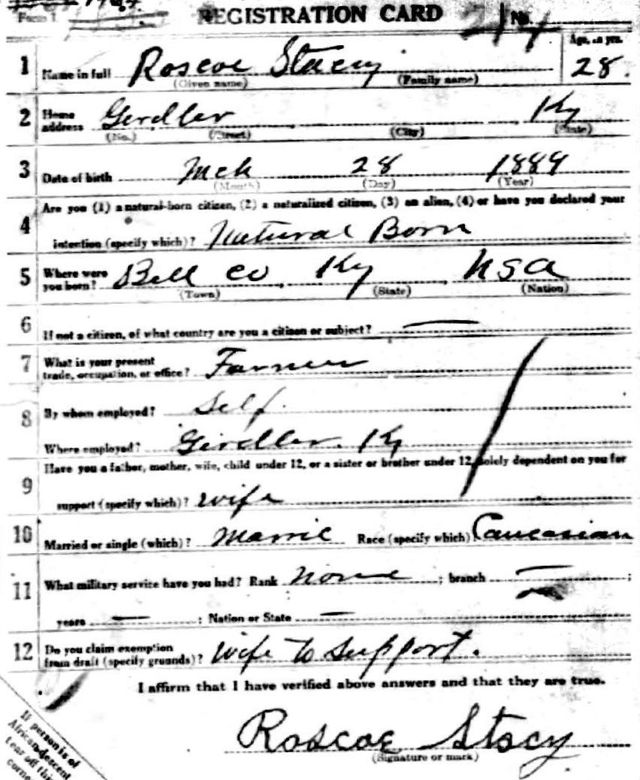 Form 1 REGISTRATION CARD No.
Age, in yrs.
1 Name in full Roscoe Stacy 28
(Given name) (Family name)
2 Home address Girdler Ky
(No.) (Street) (City) (State)
3 Date of birth Mch 28 1889
(Month) (Day) (Year)
4 Are you (1) a natural-born citizen, (2) a naturalized citizen, (3) an alien, (4) or have you declared your
intention (specify which)? Natural Born
5 Where were you born? Bell Co Ky USA
(Town) (State) (Nation)
6 If not a citizen, of what country are you a citizen or subject? —
7 What is your present trade, occupation, or office? Farmer
8 By whom employed? Self
Where employed? Girdler Ky
9 Have you a father, mother, wife, child under 12, or a sister or brother under 12, solely dependent on you for
support (specify which)? wife
10 Married or single (which)? Marrie Race (specify which)? Caucasian
11 What military service have you had? Rank None ; branch — ;
years — ; Nation or State —
12 Do you claim exemption from draft (specify grounds)? Wife to support.
I affirm that I have verified above answers and that they are true.
Roscoe Stacy
(Signature or mark)
If person is of
African descent
tear off this
corner